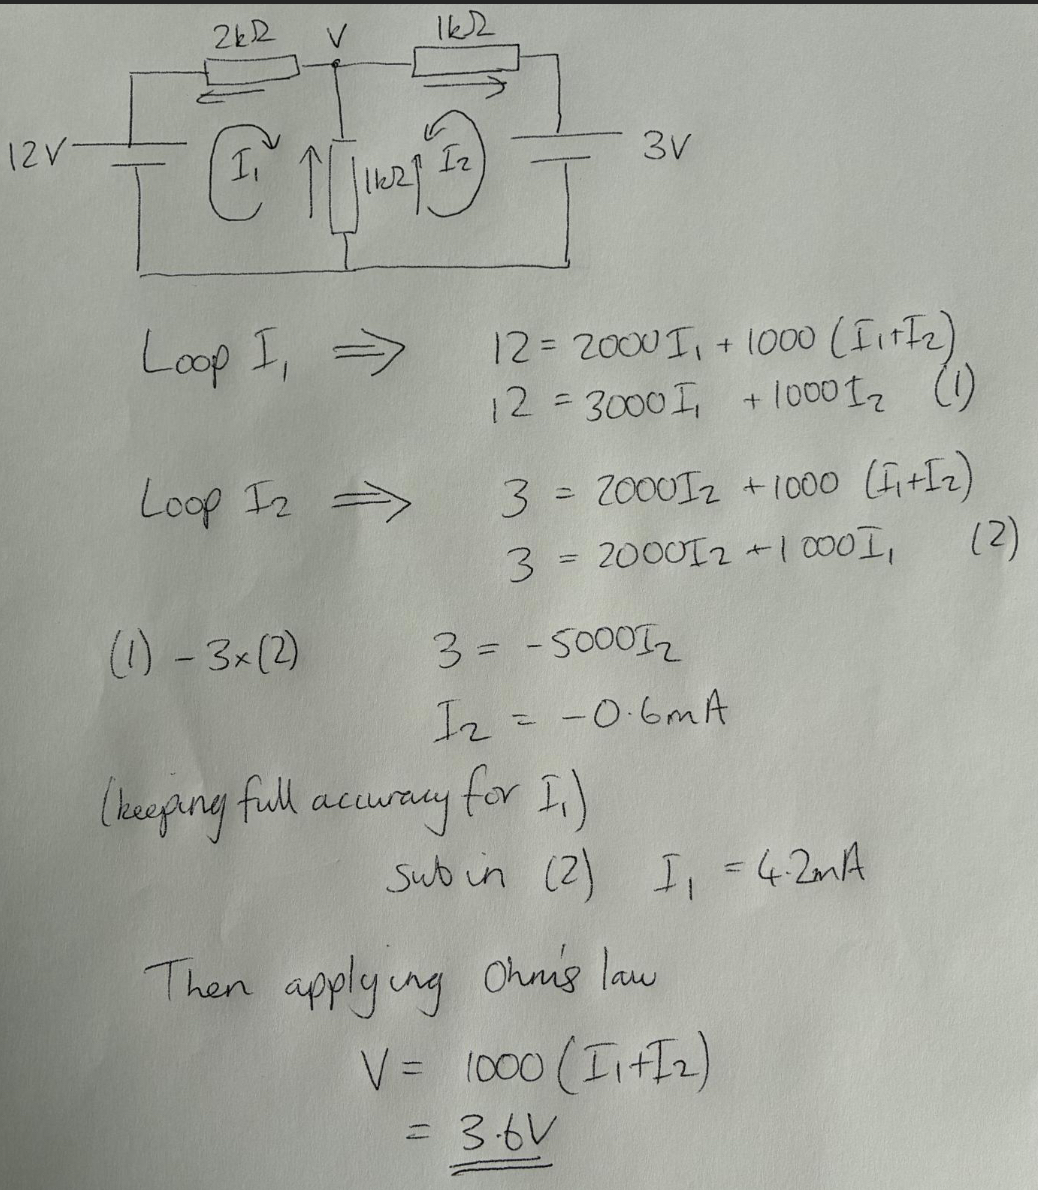 2kΩ V 1kΩ
12V I₁ 1kΩ I₂ 3V
Loop I₁ ⇒ 12 = 2000I₁ + 1000 (I₁+I₂)
12 = 3000I₁ + 1000I₂ (1)
Loop I₂ ⇒ 3 = 2000I₂ + 1000 (I₁+I₂)
3 = 2000I₂ + 1000I₁ (2)
(1) - 3×(2) 3 = -5000I₂
I₂ = -0.6mA
(keeping full accuracy for I₁)
sub in (2) I₁ = 4.2mA
Then applying Ohm's law
V = 1000 (I₁+I₂)
= 3.6V